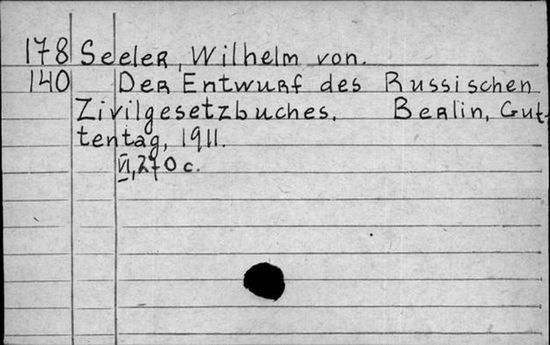 178 Seeler, Wilhelm von.
140 Der Entwurf des Russischen
Zivilgesetzbuches. Berlin, Gut-
tentag, 1911.
VI, 270 c.